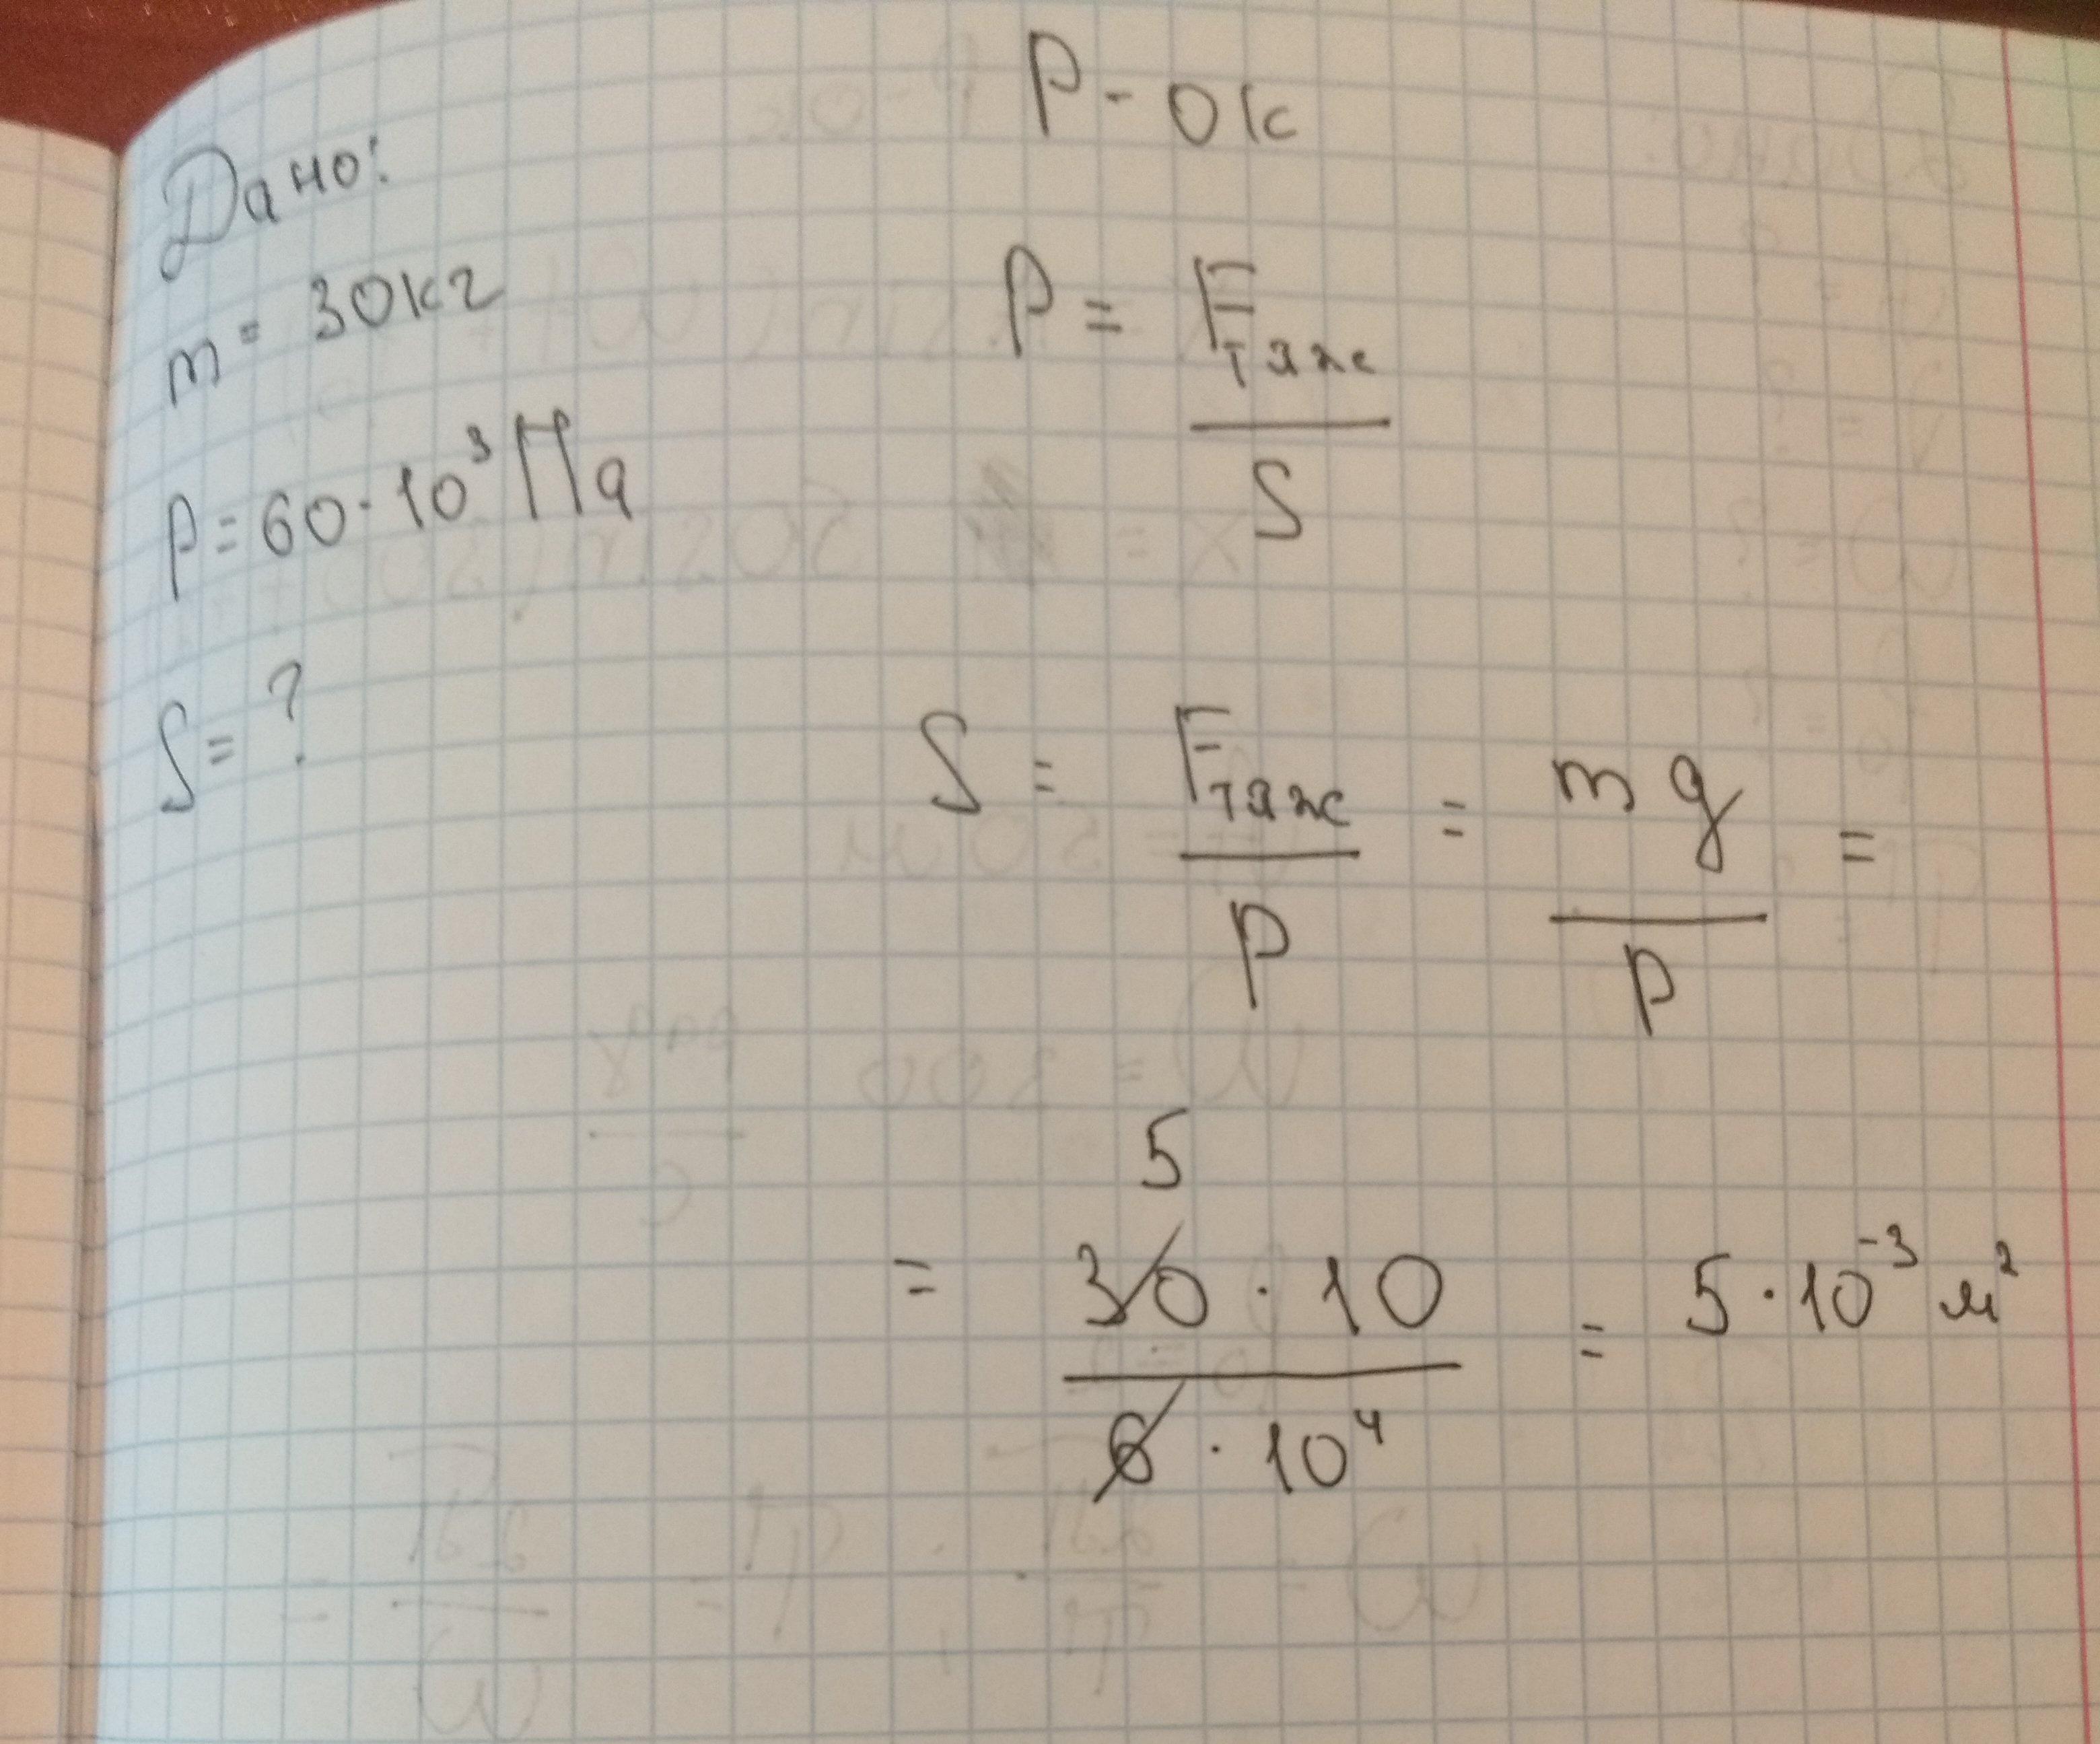 Дано:
m = 30кг
P = 60 · 10³ Па
S = ?
Р-ок
P = Fтяж / S
S = Fтяж / P = mg / P =
5
= 30 · 10 / 6 · 10⁴ = 5 · 10⁻³ м²